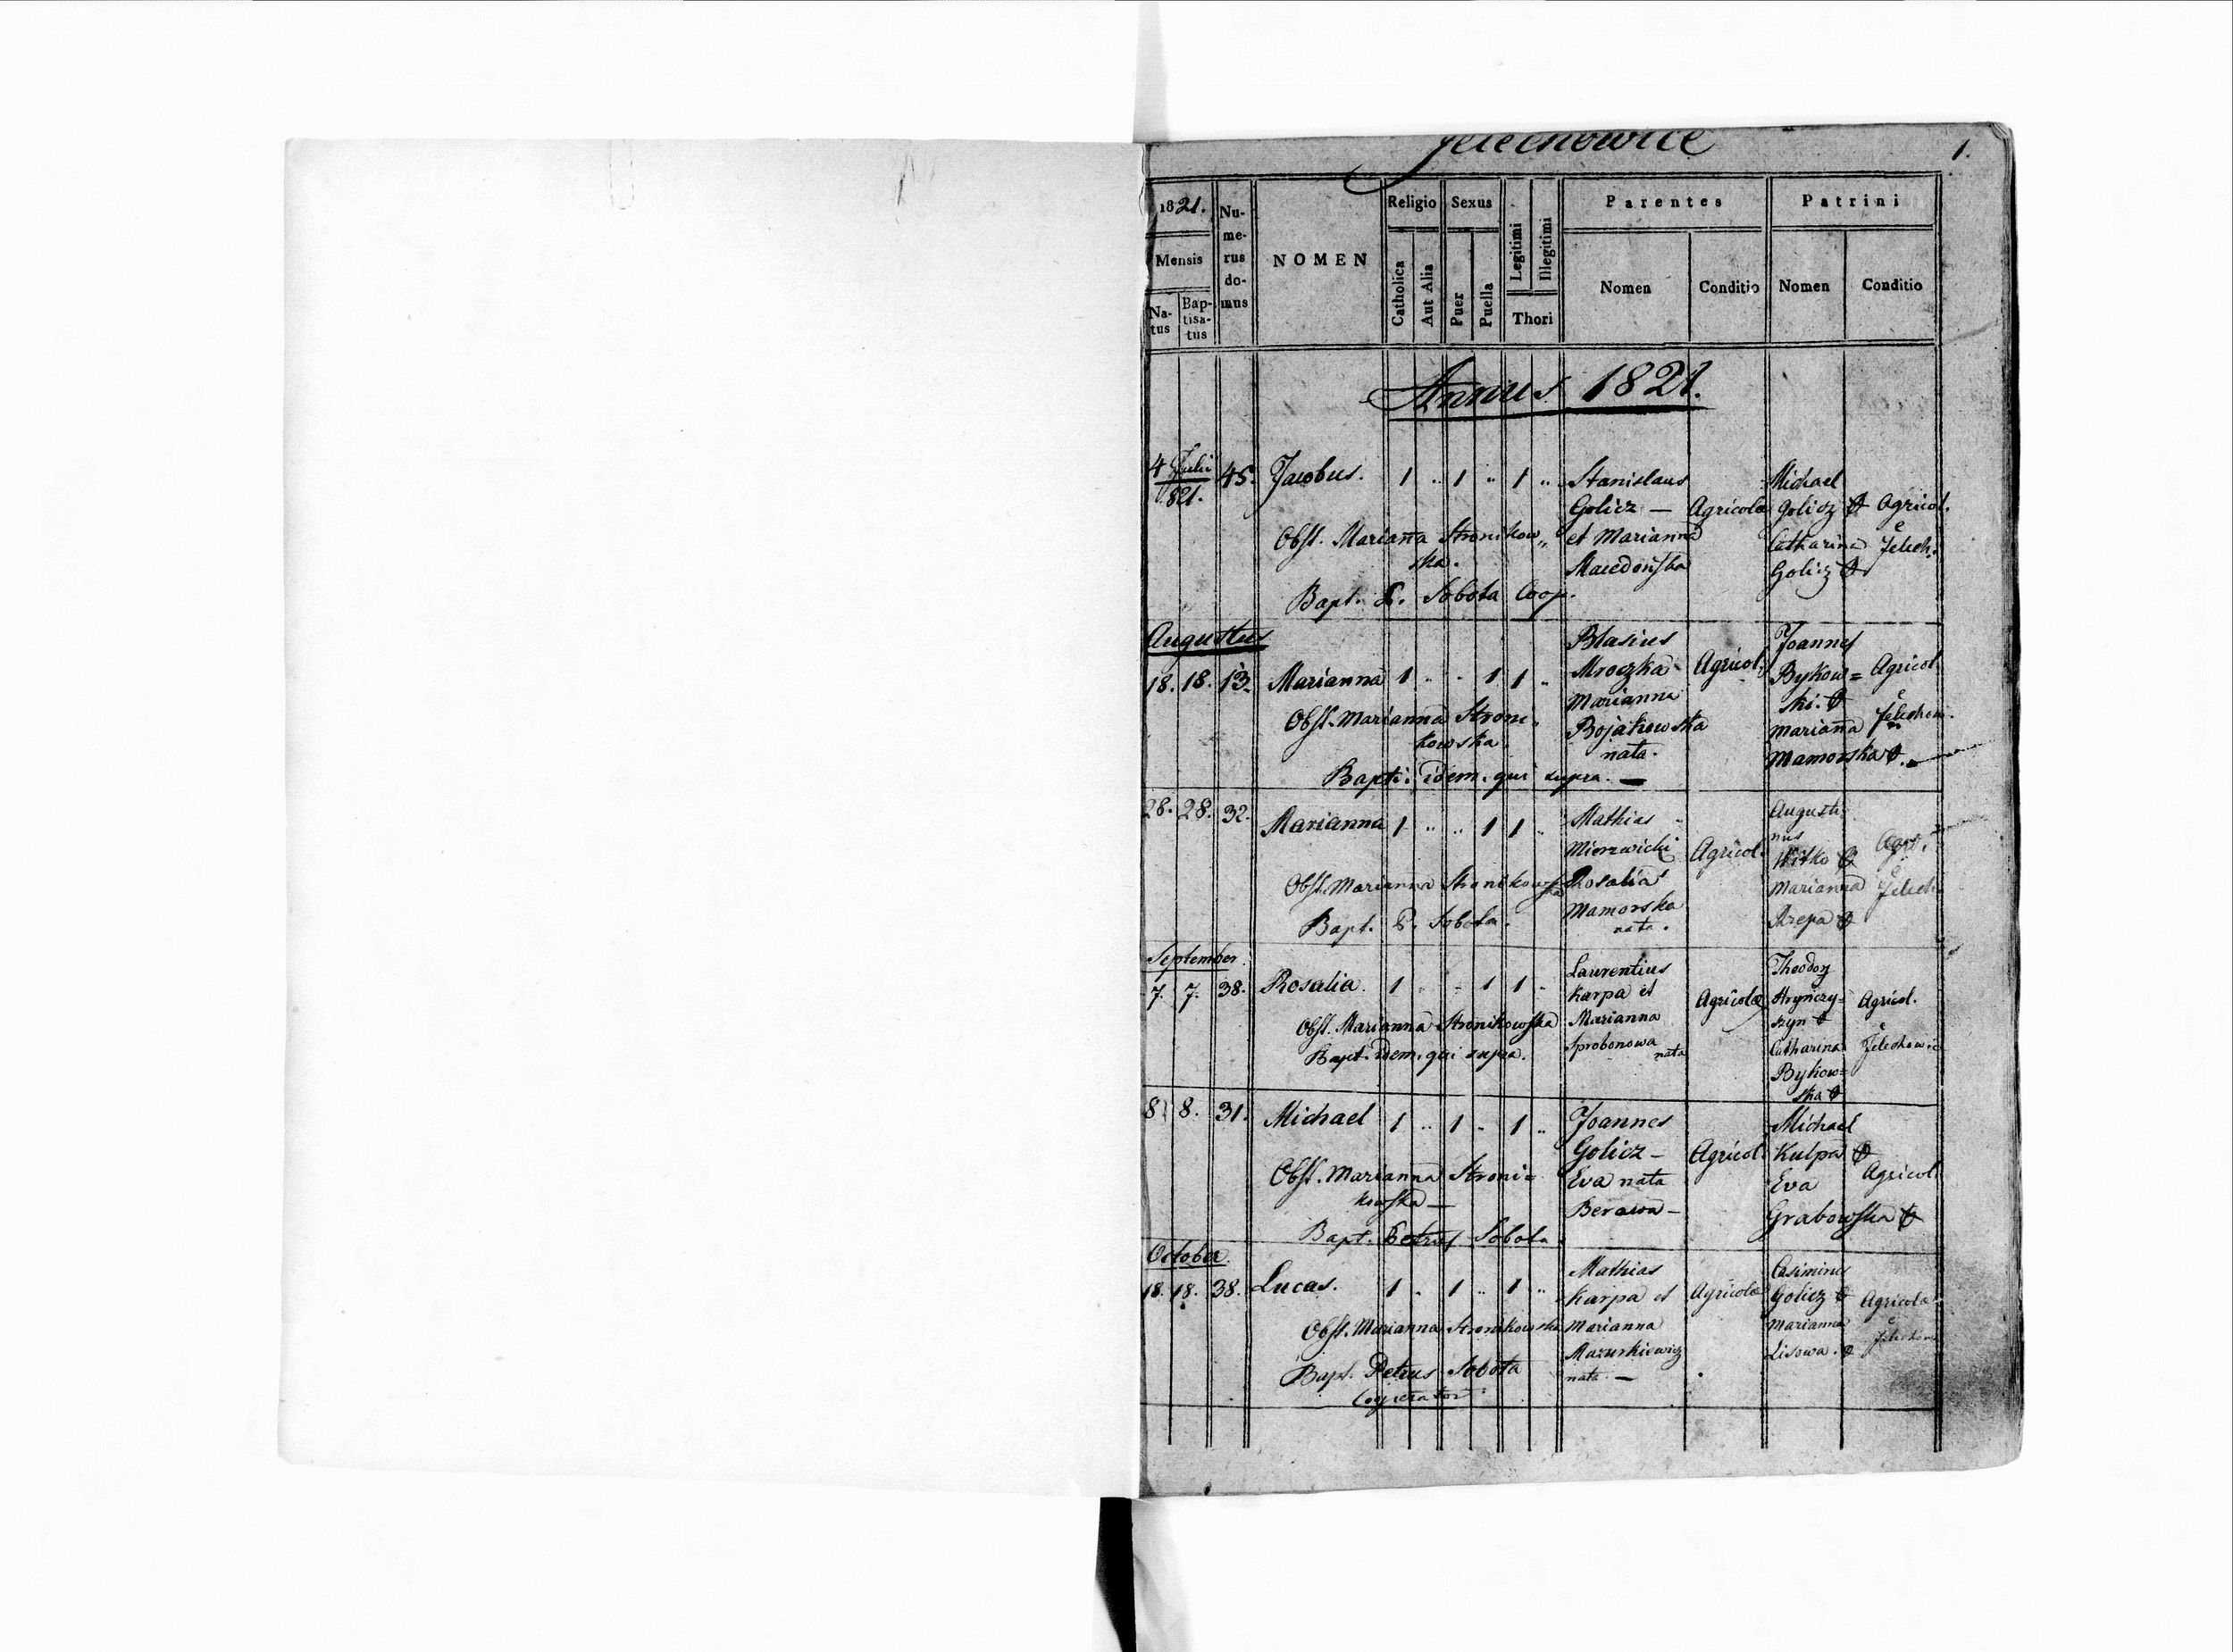 Jelechowice
1.
1821.
Mensis
Na-
tus
Bap-
tisa-
tus
Nu-
me-
rus
do-
mus
NOMEN
Religio
Catholica
Aut Alia
Sexus
Puer
Puella
Legitimi
Illegitimi
Thori
Parentes
Nomen
Conditio
Patrini
Nomen
Conditio
Annus 1821.
4 Julii
821.
45.
Jacobus. 1 " 1 " 1 "
Obst. Marianna Stronikow„
ska.
Bapt. P. Sobota Coop.
Stanislaus
Golicz —
et Marianna
Macedońska
Agricolae
Michael
Golicz
Catharina
Golicz
Agricol.
e
Jelech.
Augustus
18. 18. 13.
Marianna 1 " " 1 1 "
Obst. Marianna Stroni„
kowska
Bapti: idem. qui supra. —
Blasius
Mroczka
Marianna
Bojakowska
nata.
Agricol.
Joannes
Bykow=
ski.
Marianna
Mamorska
Agricol.
e
Jelechow.
28. 28. 32.
Marianna 1 " " 1 1 "
Obst. Marianna Stronikowska
Bapt. P. Sobota.
Mathias
Mierzwicki
Rosalia
Mamorska
nata.
Agricol.
Augusti
nus
Witko
Marianna
Rzepa
Agr.
e
Jelech.
September
7. 7. 38.
Rosalia. 1 " " 1 1 "
Obst. Marianna Stronikowska
Bapt. idem. qui supra.
Laurentius
Karpa et
Marianna
Sprobonowa
nata
Agricolae
Theodor
Hryńczy=
szyn
Catharina
Bykow=
ska
Agricol.
e
Jelechowic
8. 8. 31.
Michael 1 " 1 " 1 "
Obst. Marianna Stroni=
kowska —
Bapt. Petrus Sobota
Joannes
Golicz —
Eva nata
Berawa —
Agricol.
Michael
Kulpa
Eva
Grabowska
Agricol.
October.
18. 18. 38.
Lucas. 1 " 1 " 1 "
Obst. Marianna Stronikowska
Bapt. Petrus Sobota
Cooperator
Mathias
Karpa et
Marianna
Mazurkiewicz
nata —
Agricolae
Casimirus
Golicz
Marianna
Lisowa.
Agricolae
e
Jelechow